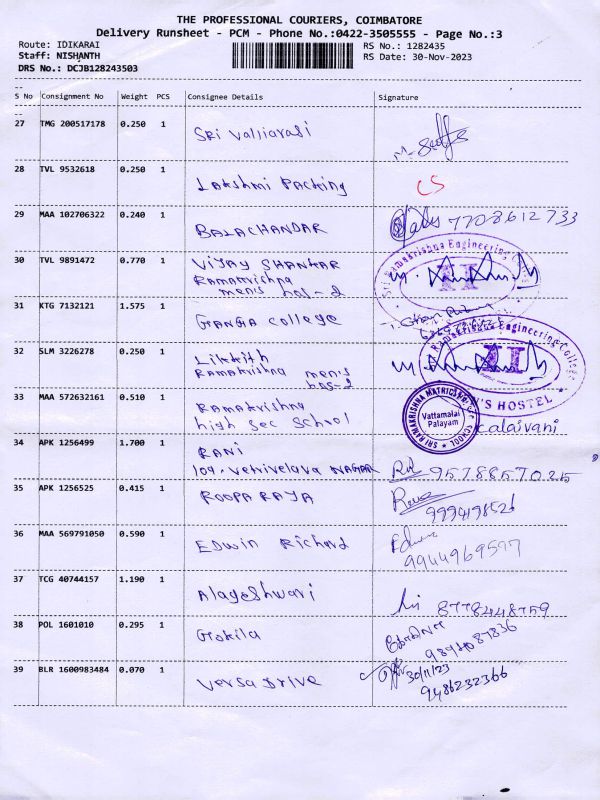 THE PROFESSIONAL COURIERS, COIMBATORE
Delivery Runsheet - PCM - Phone No.:0422-3505555 - Page No.:3
Route: IDIKARAI
Staff: NISHANTH
DRS No.: DCJB128243503
RS No.: 1282435
RS Date: 30-Nov-2023
--
S No Consignment No Weight PCS Consignee Details Signature
--
27 TMG 200517178 0.250 1 SRI Valliarasi
28 TVL 9532618 0.250 1 Lakshmi Packing CS
29 MAA 102706322 0.240 1 BALACHANDAR 7708612733
30 TVL 9891472 0.770 1 VIJAY SHANKAR
Ramakrishna
men's hos-2
Sri Ramakrishna Engineering College
II
31 KTG 7132121 1.575 1 GANGA College
32 SLM 3226278 0.250 1 Likhith
Ramakrishna men's
hos-2
Ramakrishna Engineering College
II
N'S HOSTEL
33 MAA 572632161 0.510 1 Ramakrishna
high Sec School
SRI RAMAKRISHNA MATRIC SCHOOL
Vattamalai
Palayam
calaivani
34 APK 1256499 1.700 1 RANI
109, NAGAR 9578857025
35 APK 1256525 0.415 1 ROOPA RAYA
36 MAA 569791050 0.590 1 EDWIN Richard Edwin
9944969597
37 TCG 40744157 1.190 1 Alageshwari 8778448759
38 POL 1601010 0.295 1 Gokila
39 BLR 1600983484 0.070 1 Versa Drive 30/11/23
9486232366